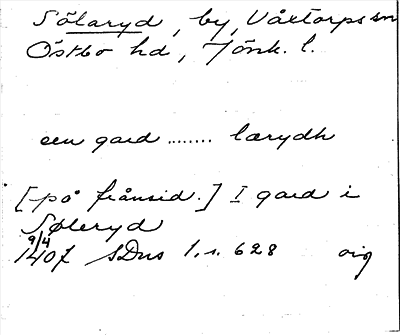 Sölaryd, by, Våxtorps sn
Östbo hd, Jönk. l.
een gard ........ lærydh
[på frånsid.] I gard i
Søleryd
9/4
1407 SDns 1, s. 628 orig